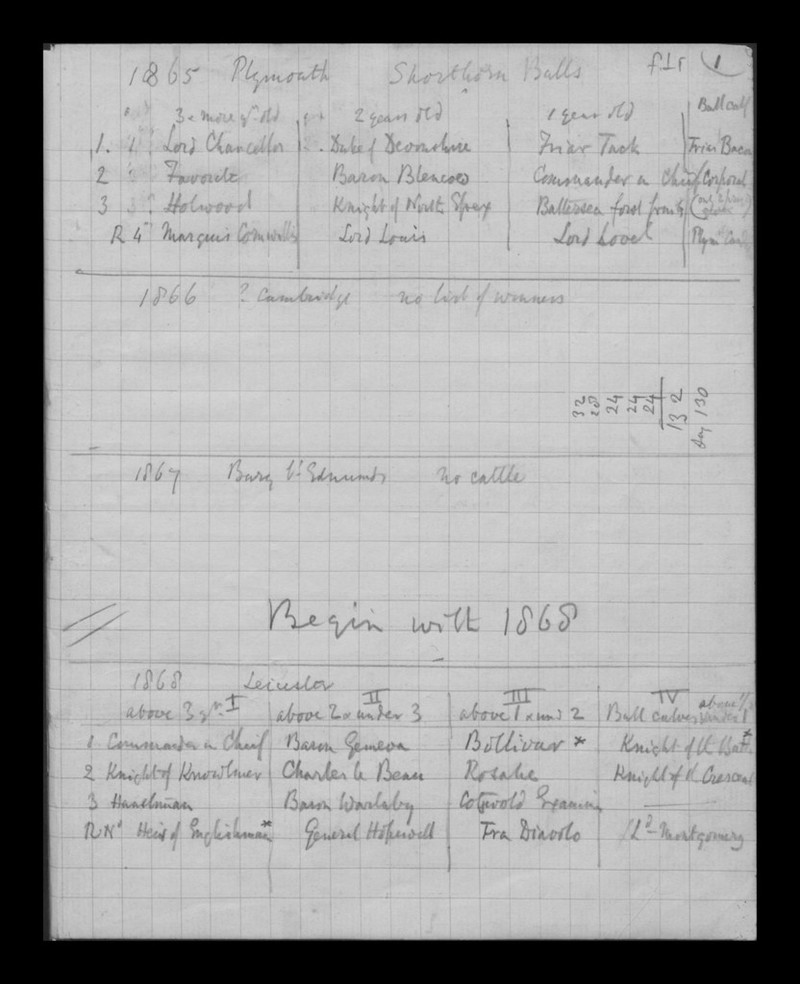 1865 Plymouth Shorthorn Bulls f1r 1
3 & more yrs old 2 years old 1 year old Bull calf
1. 1 Lord Chancellor Duke of Devonshire Friar Tuck Friar Bacon
2 Favorite Baron Blencow Commander in Chief Corporal
3 Holwood Knight of North Battersea (only 2 prizes
R 4 Marquis Cornwallis Lord Louis Lord Lovel
1866 ? Cambridge no list of winners
32
28
24
24
24
132
say 130
1867 Bury St Edmunds no cattle
Begin with 1868
1868 Leicester
I II III IV
above 3 yrs above 2 & under 3 above 1 & und 2 Bull calves above under 1
1 Commander in Chief Baron Geneva Bollivar * Knight of the *
2 Knight of Knowlmere Charles le Beau Rosalie Knight of the Crescent
3 Baron Warlaby Cotswold
R No Heir of Englishman * General Hopewell Fra Diavolo Ld Montgomery